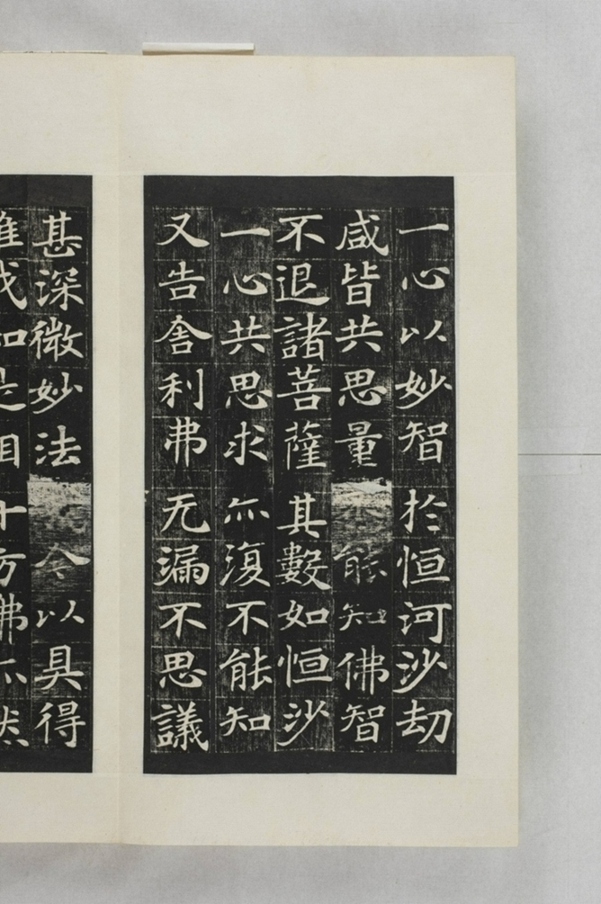 一心以妙智於恒河沙劫
咸皆共思量能知佛智
不退諸菩薩其數如恒沙
一心共思求亦復不能知
又告舍利弗无漏不思議
甚深微妙法今以具得
唯我知是相十方佛亦然